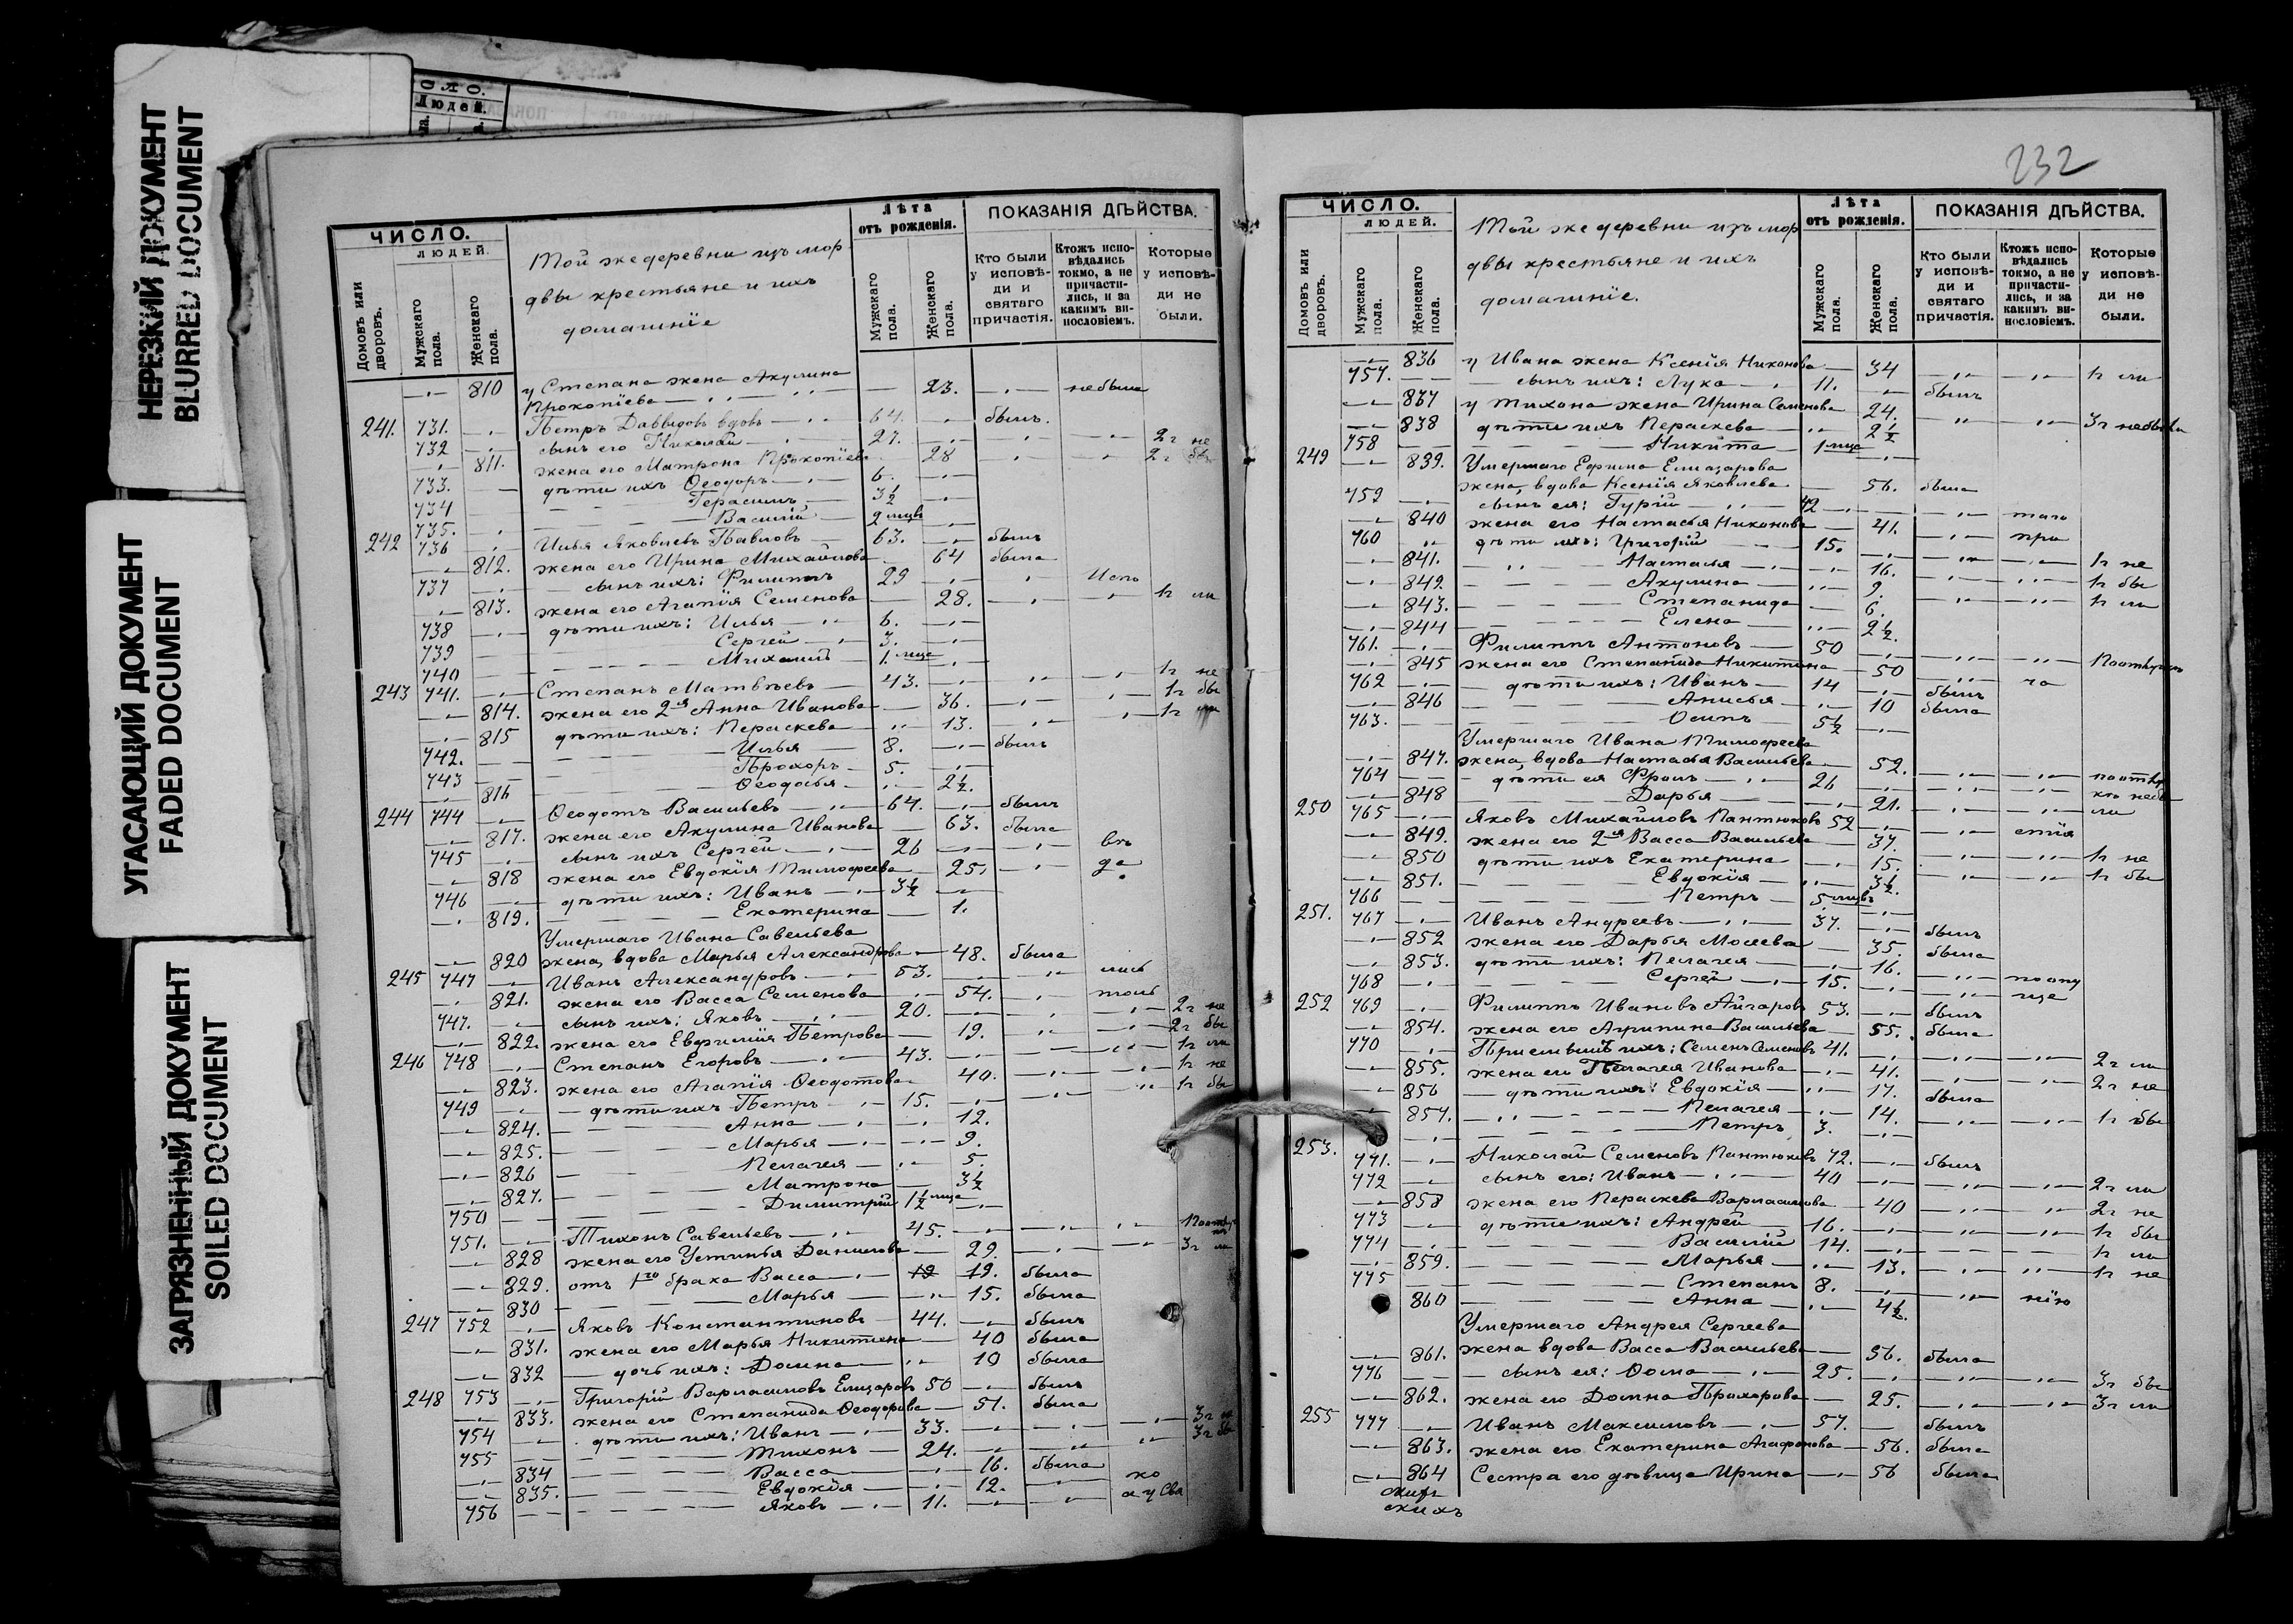 НЕРЕЗКИЙ ДОКУМЕНТ
BLURRED DOCUMENT
УГАСАЮЩИЙ ДОКУМЕНТ
FADED DOCUMENT
ЗАГРЯЗНЕННЫЙ ДОКУМЕНТ
SOILED DOCUMENT
Людей.
ЧИСЛО.
ЛЮДЕЙ.
Домовъ или дворовъ.
Мужскаго пола.
Женскаго пола.
Той же деревни изъ мор
двы крестьяне и ихъ
домашніе
Лѣта
отъ рожденія.
Мужскаго пола.
Женскаго пола.
ПОКАЗАНІЯ ДѢЙСТВА.
Кто были у исповѣ-ди и святаго причастія.
Ктожъ испо-вѣдались токмо, а не причасти-лись, и за какимъ ви-нословіемъ.
Которые у исповѣ-ди не были.
810 у Степана жена Акулина
Прокопіева 23. не была
241. 731. Петръ Давыдовъ вдовъ 64. былъ.
732 сынъ его Николай 27. 2г не
811. жена его Матрона Прокопіева 28 2г бы
733. дѣти ихъ Ѳеодоръ 6.
734 Герасимъ 3½
735. Василій 2 мцвъ
242 736 Илья Яковлевъ Павловъ 63. былъ
812. жена его Ирина Михайлова 64 была
737 сынъ ихъ: Филиппъ 29 Испо
813. жена его Агапія Семенова 28. 1г ли
738 дѣти ихъ: Илья 6.
739 Сергей 3.
740 Михаилъ 1. мца
243 741. Степанъ Матвѣевъ 43. 1г не
814. жена его 2я Анна Иванова 36. 1г бы
815 дѣти ихъ: Параскева 13. 1г ли
742. Илья 8. былъ
743 Прохоръ 5.
816 Ѳеодосья 2½.
244 744 Ѳеодотъ Васильевъ 64. былъ
817. жена его Акулина Иванова 63. была
745 сынъ ихъ Сергей 26 въ
818 жена его Евдокія Тимоѳеева 25. да
746 дѣти ихъ: Иванъ 3½
819. Екатерина 1.
Умершаго Ивана Савельева
820 жена, вдова Марья Александрова 48. была
245 747 Иванъ Александровъ 53. лись
821. жена его Васса Семенова 54. толь
747. сынъ ихъ: Яковъ 20. 2г не
822. жена его Евфимія Петрова 19. 2г бы
246 748 Степанъ Егоровъ 43. 1г ли
823. жена его Агапія Ѳеодотова 40. 1г не
749 дѣти ихъ Петръ 15. 1г бы
824. Анна 12.
825. Марья 9.
826 Пелагея 5.
827. Матрона 3½
750 Димитрій 1½ мца
751. Тихонъ Савельевъ 45.
828 жена его Устинья Данилова 29. 3г ли
829. отъ 1го брака Васса 19 19. была
830 Марья 15. была
247 752 Яковъ Константиновъ 44. былъ
831. жена его Марья Никитина 40 была
832 дочь ихъ: Домна 10 была
248 753 Григорій Варлаамовъ Елизаровъ 50 былъ
833. жена его Степанида Ѳеодорова 51. была
754 дѣти ихъ: Иванъ 33. 3г не
755 Тихонъ 24. 3г бы
834 Васса 16. была
835. Евдокія 12. ко
756 Яковъ 11. а у Свя
232
ЧИСЛО.
ЛЮДЕЙ.
Домовъ или дворовъ.
Мужскаго пола.
Женскаго пола.
Той же деревни изъ мор
двы крестьяне и ихъ
домашніе.
Лѣта
отъ рожденія.
Мужскаго пола.
Женскаго пола.
ПОКАЗАНІЯ ДѢЙСТВА.
Кто были у исповѣ-ди и святаго причастія.
Ктожъ испо-вѣдались токмо, а не причасти-лись, и за какимъ ви-нословіемъ.
Которые у исповѣ-ди не были.
836 у Ивана жена Ксенія Никонова 34 1г ли
757. сынъ ихъ: Лука 11. былъ
837 у Тихона жена Ирина Семенова 24. 3г не были
838 дѣти ихъ Параскева 2½
758 Никита 1 мца
249 839. Умершаго Ефима Елиазарова
жена, вдова Ксенія Яковлева 56. была
759 сынъ ея: Гурій 42 таго
840 жена его Настасья Никонова 41. при
760 дѣти ихъ: Григорій 15.
841. Настасья 16. 1г не
842. Акулина 9. 1г бы
843. Степанида 6. 1г ли
844 Елена 2½.
761. Филиппъ Антоновъ 50
845 жена его Степанида Никитина 50
762 дѣти ихъ: Иванъ 14 ча былъ
846 Анисья 10 была
763. Осипъ 5½
Умершаго Ивана Тимоѳеева
847. жена, вдова Настасья Васильева 52.
764 дѣти ея Фролъ 26
848 Дарья 21. ли
250 765 Яковъ Михайловъ Пантюковъ 52 стія
849. жена его 2я Васса Васильева 37.
850 дѣти ихъ Екатерина 15. 1г не
851. Евдокія 3½. 1г бы
766 Петръ 5 мцвъ
251. 767 Иванъ Андреевъ 37. былъ
852 жена его Дарья Моѵсеева 35. была
853. дѣти ихъ: Пелагея 16.
768 Сергей 15. по опу
252 769 Филиппъ Ивановъ Айгаровъ 53. былъ
854. жена его Агрипина Васильева 55. была
770 Пріемышъ ихъ: Семенъ Семеновъ 41.
855. жена его Пелагея Иванова 41. 2г ли
856 дѣти ихъ: Евдокія 17. была 2г не
857. Пелагея 14. 1г бы
Петръ 3.
253. 771. Николай Семеновъ Пантюковъ 72. былъ
772 сынъ его: Иванъ 40 2г ли
858 жена его Параскева Варлаамова 40 2г не
773 дѣти ихъ: Андрей 16. 1г бы
774 Василій 14. 1г ли
859. Марья 13. 1г не
775 Степанъ 8. нію
860 Анна 4½.
Умершаго Андрея Сергеева
861. жена вдова Васса Васильева 56. была
776 сынъ ея: Ѳома 25. 3г бы
862. жена его Домна Прохорова 25. 3г ли
255 777 Иванъ Максимовъ 57. былъ
863. жена его Екатерина Агафонова 56. была
864 Сестра его дѣвица Ирина 56 была